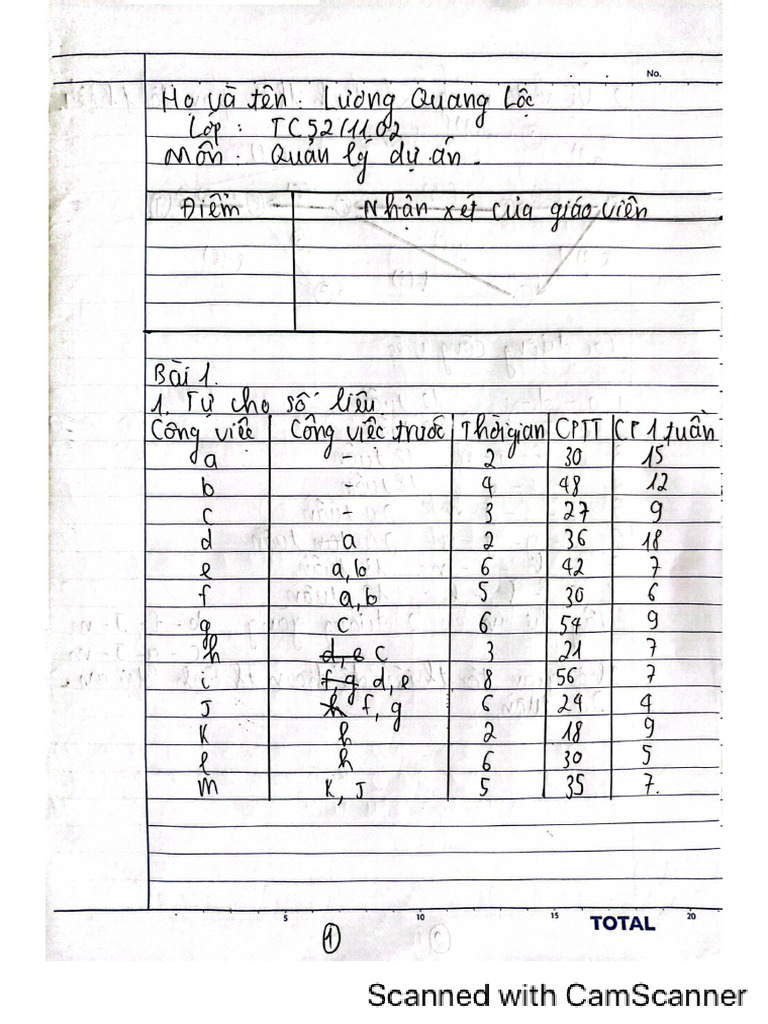 No.
Họ và tên: Lương Quang Lộc
Lớp: TC52/11.02
Môn: Quản lý dự án.
Điểm Nhận xét của giáo viên
Bài 1.
1. Tự cho số liệu
Công việc Công việc trước Thời gian CPTT CP 1 tuần
a - 2 30 15
b - 4 48 12
c - 3 27 9
d a 2 36 18
e a,b 6 42 7
f a,b 5 30 6
g c 6 54 9
h d,e c 3 21 7
i f,g d,e 8 56 7
J h f,g 6 24 4
K h 2 18 9
l h 6 30 5
m K,J 5 35 7.
5 10 15 TOTAL 20
1
Scanned with CamScanner